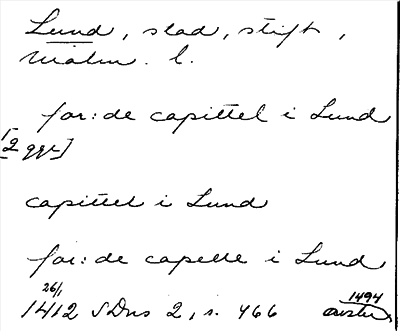 Lund, stad, stift,
Malm. l.
for: de capittel i Lund
[2 ggr]
capittel i Lund
for: de capelle i Lund
26/1
1412 SDns 2, s. 466
1494
avskr.